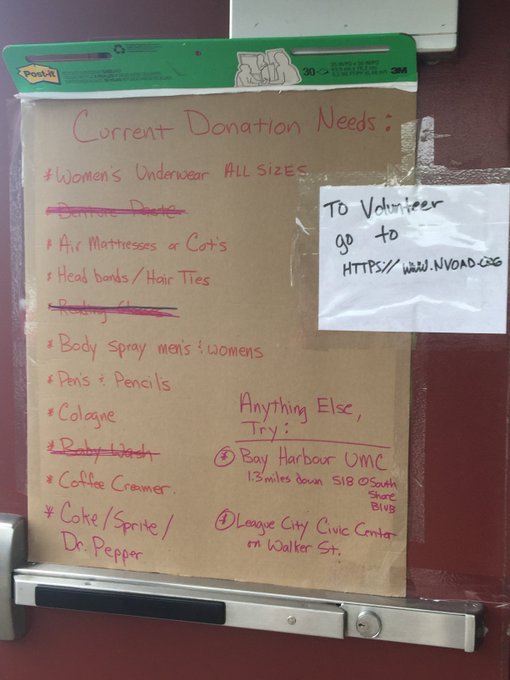 Post-it
30
3M
Current Donation Needs:
* Women's Underwear ALL SIZES
Denture Paste
* Air Mattresses or Cot's
* Head bands/Hair Ties
Reading Glasses
* Body spray men's & womens
* Pen's & Pencils
* Cologne
* Baby Wash
* Coffee Creamer.
* Coke/Sprite/
Dr. Pepper
Anything Else,
Try:
* Bay Harbour UMC
1.3 miles down 518 @ South
Shore
BLVD
* League City Civic Center
on Walker St.
To Volunteer
go to
HTTPS://www.NVOAD.ORG